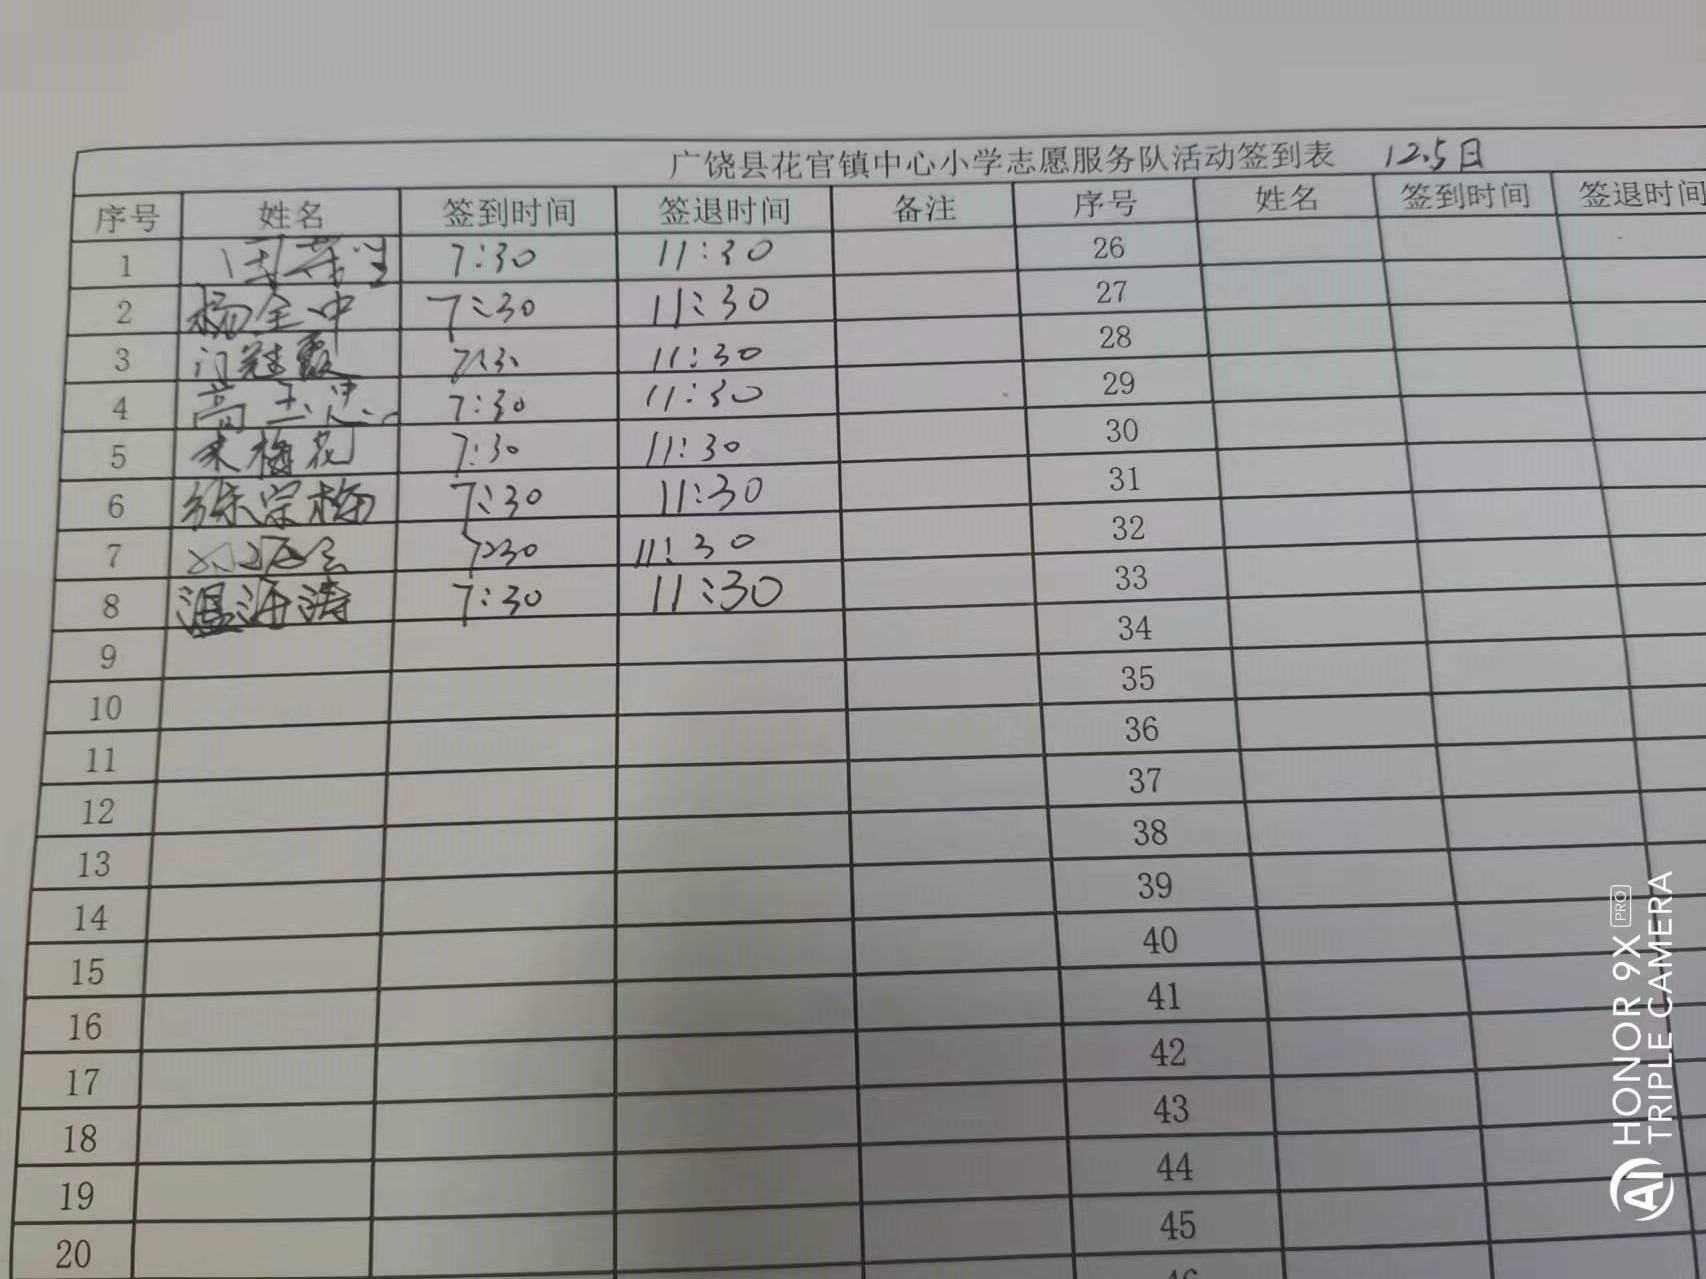 广饶县花官镇中心小学志愿服务队活动签到表 12.5日
序号 姓名 签到时间 签退时间 备注 序号 姓名 签到时间 签退时间
1 7:30 11:30 26
2 杨全中 7:30 11:30 27
3 门冠霞 7:30 11:30 28
4 高玉忠 7:30 11:30 29
5 梅花 7:30 11:30 30
6 徐宗梅 7:30 11:30 31
7 7:30 11:30 32
8 温海涛 7:30 11:30 33
9 34
10 35
11 36
12 37
13 38
14 39
15 40
16 41
17 42
18 43
19 44
20 45
HONOR 9X PRO
TRIPLE CAMERA
AI